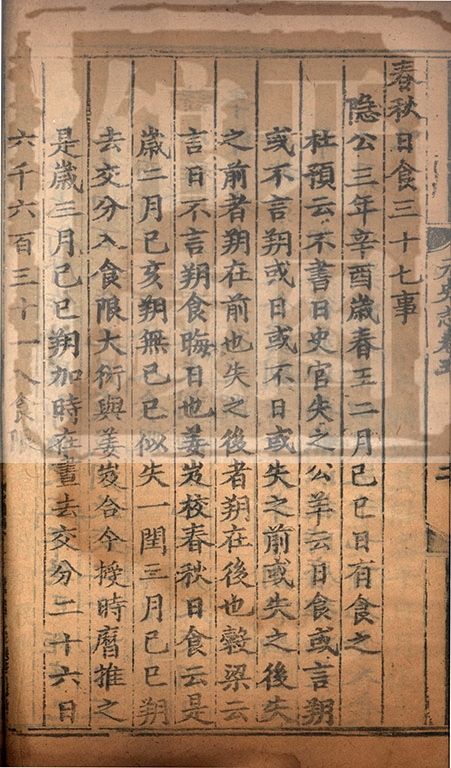 春秋日食三十七事
隱公三年辛酉歲春王二月己巳日有食之
杜預云不書日史官失之公羊云日食或言朔
或不言朔或日或不日或失之前或失之後失
之前者朔在前也失之後者朔在後也穀梁云
言日不言朔食晦日也姜岌校春秋日食云是
歲二月己亥朔無己巳似失一閏三月己巳朔
去交分入食限大衍與姜岌合今授時曆推之
是歲三月己巳朔加時在晝去交分二十六日
六千六百三十一入食限
元史志卷五
二